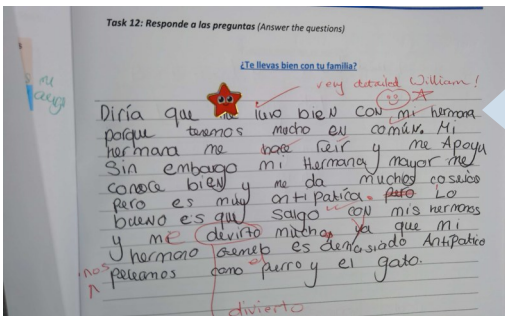 Task 12: Responde a las preguntas (Answer the questions)
¿Te llevas bien con tu familia?
very detailed William!
me
Diría que me llevo bien CON mi hermana
porque tenemos mucho en común. Mi
hermana me hace reir y me Apoya
Sin embargo mi Hermana mayor me
conoce bien y me da muchos consejos
pero es muy antipatica. pero Lo
bueno es que salgo CON mis hermanos
y me devirto mucho, ya que mi
hermano gemelo es demasiado Antipatico
nos
peleamos como perro y el gato.
el
divierto